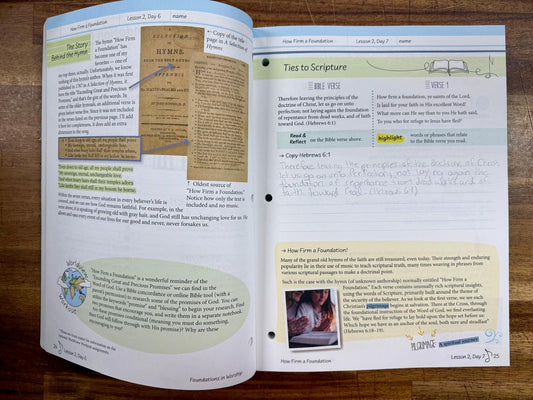 How Firm a Foundation
Lesson 2, Day 6
name
The Story
Behind the Hymn
The hymn "How Firm
a Foundation" has
become one of my
favorites — one of
my top three, actually. Unfortunately, we know
nothing of this hymn's author. When it was first
published in 1787 in A Selection of Hymns, it
bore the title "Exceeding Great and Precious
Promises," and that's the gist of the words. In
some of the older hymnals, an additional verse is
given before verse five. Since it was not included
in the verses listed on the previous page, I'll add
it here for completeness. It does add an extra
dimension to the song.
Copy of the title
page in A Selection of
Hymns
A
SELECTION
OF
HYMNS
FROM THE BEST AUTHORS
APPENDIX
Down to old age, all my people shall prove
My sovereign, eternal, unchangeable love;
And when hoary hairs shall their temples adorn
Like lambs they still in my bosom be borne.
Then down to old age, all my people shall prove
My sovereign, eternal, unchangeable love
And when hoary hairs shall their temples adorn
Like lambs they shall still in my bosom be borne.
Oldest source of
"How Firm a Foundation."
Notice how only the text is
included and no music.
Within the seven verses, every situation in every believer's life is
covered, and we see how God remains faithful. For example, in the
verse above, it is speaking of growing old with gray hair, and God still has unchanging love for us. He
allows and uses every event of our lives for our good and never, never forsakes us.
Worldview
Workout
"How Firm a Foundation" is a wonderful reminder of the
"Exceeding Great and Precious Promises" we can find in the
Word of God. Use a Bible concordance or online Bible tool (with a
parent's permission) to research some of the promises of God. You can
utilize the keywords "promise" and "blessing" to begin your research. Find
two promises that encourage you, and write them in a separate notebook.
Are these promises conditional (meaning you must do something,
then God will follow through with His promise)? Why are these
encouraging to you?
26
Lesson 2, Day 6
Foundations in Worship
How Firm a Foundation
Lesson 2, Day 7
name
Ties to Scripture
BIBLE VERSE
Therefore leaving the principles of the
doctrine of Christ, let us go on unto
perfection; not laying again the foundation
of repentance from dead works, and of faith
toward God. (Hebrews 6:1)
VERSE 1
How firm a foundation, ye saints of the Lord,
Is laid for your faith in His excellent Word!
What more can He say than to you He hath said,
To you who for refuge to Jesus have fled?
Read &
Reflect
on the Bible verse above.
highlight
words or phrases that relate
to the Bible verse you read.
Copy Hebrews 6:1
Therefore leaving the principles of the doctrine of Christ
let us go on unto perfection, not laying again the
foundation of repentance from dead works and of
faith toward God. (Hebrews 6:1)
How Firm a Foundation!
Many of the grand old hymns of the faith are still treasured, even today. Their strength and enduring
popularity lie in their use of music to teach scriptural truth, many times weaving in phrases from
various scriptural passages to make a doctrinal point.
Such is the case with the hymn (of unknown authorship) normally entitled "How Firm a
Foundation." Each verse contains unusually rich scriptural insights,
using the words of Scripture, primarily built around the theme of
the security of the believer. As we look at the first verse, we see each
Christian's pilgrimage begins at salvation. There at the Cross, through
the foundational instruction of the Word of God, we find everlasting
life. We "have fled for refuge to lay hold upon the hope set before us:
Which hope we have as an anchor of the soul, both sure and steadfast"
(Hebrews 6:18–19).
PILGRIMAGE
A spiritual journey
How Firm a Foundation
Lesson 2, Day 7
25